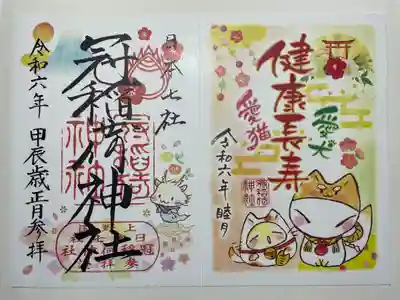 日本七社
冠稲荷神社
令和六年 甲辰歳正月参拝
健康長寿
愛犬
愛猫
令和六年 睦月